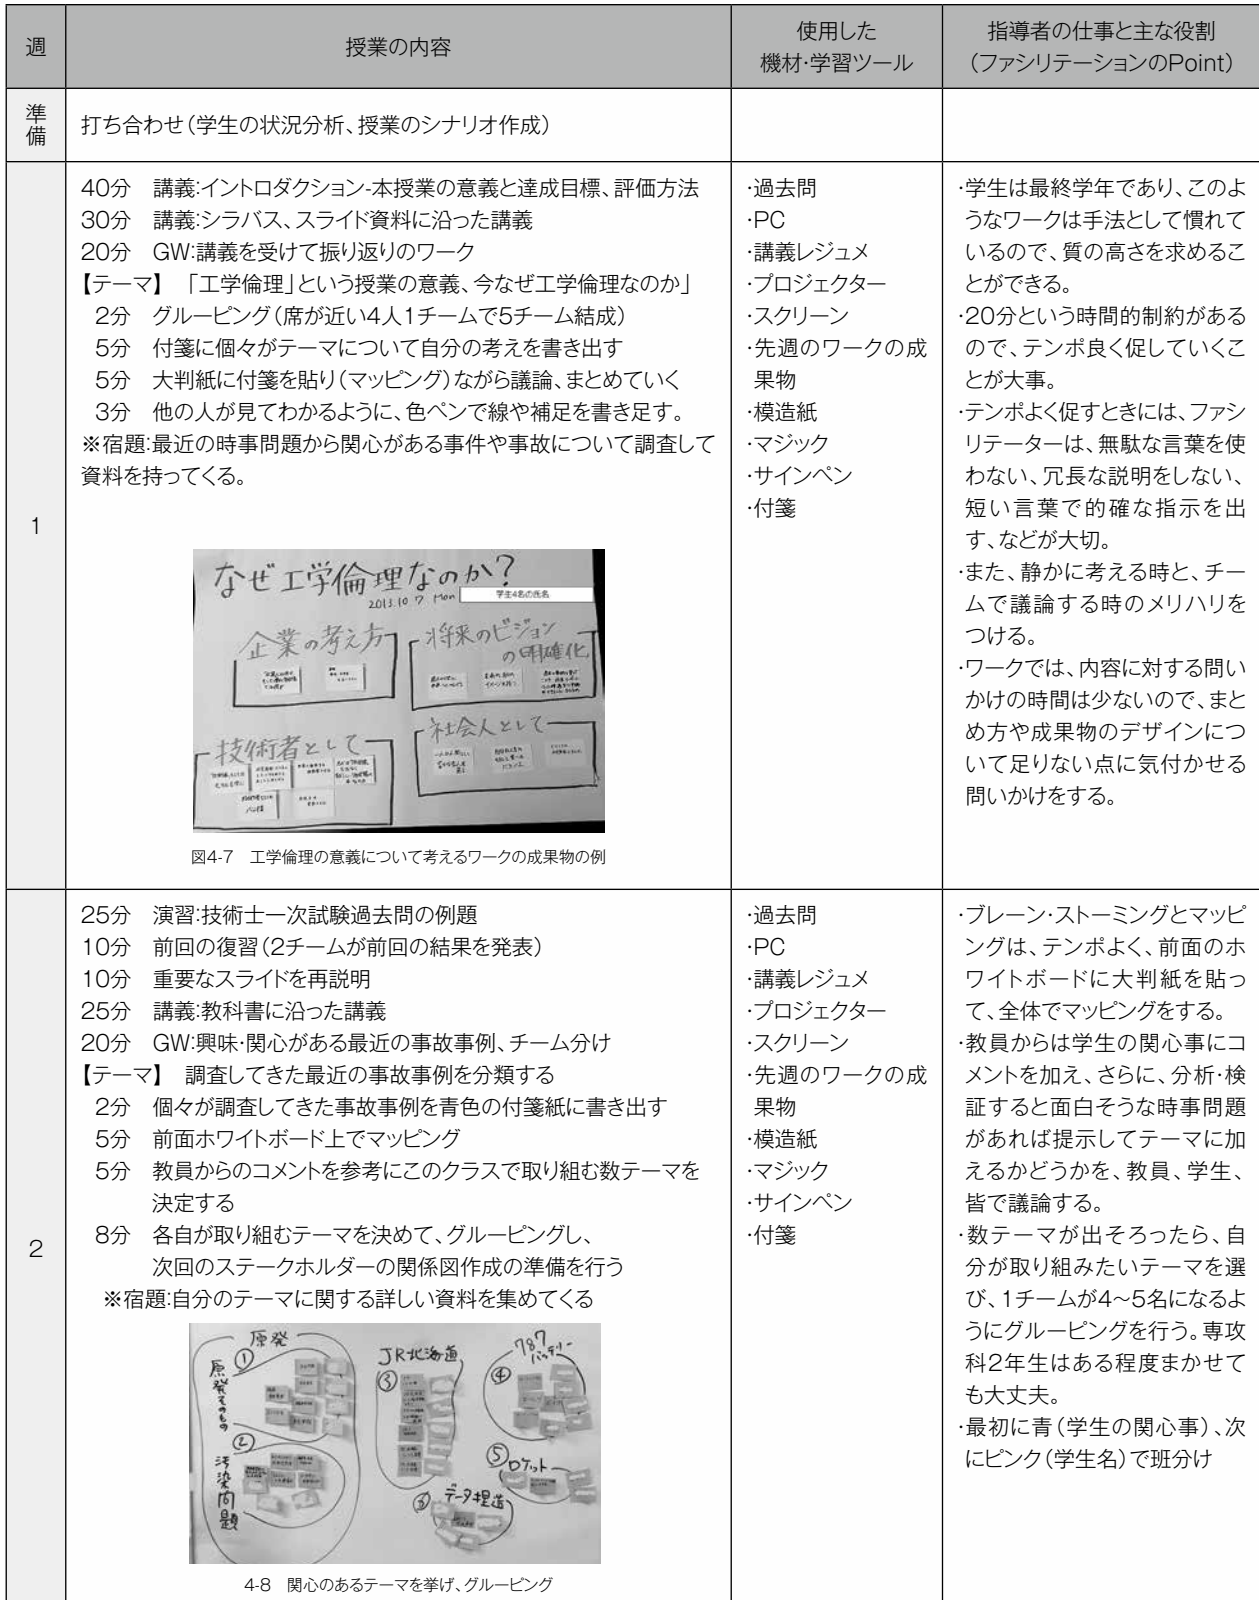 週
授業の内容
使用した
機材・学習ツール
指導者の仕事と主な役割
（ファシリテーションのPoint）
準備
打ち合わせ（学生の状況分析、授業のシナリオ作成）
1
40分　講義:イントロダクション-本授業の意義と達成目標、評価方法
30分　講義:シラバス、スライド資料に沿った講義
20分　GW:講義を受けて振り返りのワーク
【テーマ】　「工学倫理」という授業の意義、今なぜ工学倫理なのか」
2分　グルーピング（席が近い4人1チームで5チーム結成）
5分　付箋に個々がテーマについて自分の考えを書き出す
5分　大判紙に付箋を貼り（マッピング）ながら議論、まとめていく
3分　他の人が見てわかるように、色ペンで線や補足を書き足す。
※宿題:最近の時事問題から関心がある事件や事故について調査して
資料を持ってくる。
なぜ工学倫理なのか?
2013.10 7. Mon
学生4名の氏名
企業の考え方
将来のビジョン
の明確化
技術者として
社会人として
図4-7　工学倫理の意義について考えるワークの成果物の例
・過去問
・PC
・講義レジュメ
・プロジェクター
・スクリーン
・先週のワークの成
果物
・模造紙
・マジック
・サインペン
・付箋
・学生は最終学年であり、このよ
うなワークは手法として慣れて
いるので、質の高さを求めるこ
とができる。
・20分という時間的制約がある
ので、テンポ良く促していくこ
とが大事。
・テンポよく促すときには、ファシ
リテーターは、無駄な言葉を使
わない、冗長な説明をしない、
短い言葉で的確な指示を出
す、などが大切。
・また、静かに考える時と、チー
ムで議論する時のメリハリを
つける。
・ワークでは、内容に対する問い
かけの時間は少ないので、まと
め方や成果物のデザインにつ
いて足りない点に気付かせる
問いかけをする。
2
25分　演習:技術士一次試験過去問の例題
10分　前回の復習（2チームが前回の結果を発表）
10分　重要なスライドを再説明
25分　講義:教科書に沿った講義
20分　GW:興味・関心がある最近の事故事例、チーム分け
【テーマ】　調査してきた最近の事故事例を分類する
2分　個々が調査してきた事故事例を青色の付箋紙に書き出す
5分　前面ホワイトボード上でマッピング
5分　教員からのコメントを参考にこのクラスで取り組む数テーマを
決定する
8分　各自が取り組むテーマを決めて、グルーピングし、
次回のステークホルダーの関係図作成の準備を行う
※宿題:自分のテーマに関する詳しい資料を集めてくる
原発
①
原発そのもの
②
汚染問題
JR北海道
③
787
バッテリー
④
⑤ロケット
⑥ データ捏造
4-8　関心のあるテーマを挙げ、グルーピング
・過去問
・PC
・講義レジュメ
・プロジェクター
・スクリーン
・先週のワークの成
果物
・模造紙
・マジック
・サインペン
・付箋
・ブレーン・ストーミングとマッピ
ングは、テンポよく、前面のホ
ワイトボードに大判紙を貼っ
て、全体でマッピングをする。
・教員からは学生の関心事にコ
メントを加え、さらに、分析・検
証すると面白そうな時事問題
があれば提示してテーマに加
えるかどうかを、教員、学生、
皆で議論する。
・数テーマが出そろったら、自
分が取り組みたいテーマを選
び、1チームが4〜5名になるよ
うにグルーピングを行う。専攻
科2年生はある程度まかせて
も大丈夫。
・最初に青（学生の関心事）、次
にピンク（学生名）で班分け